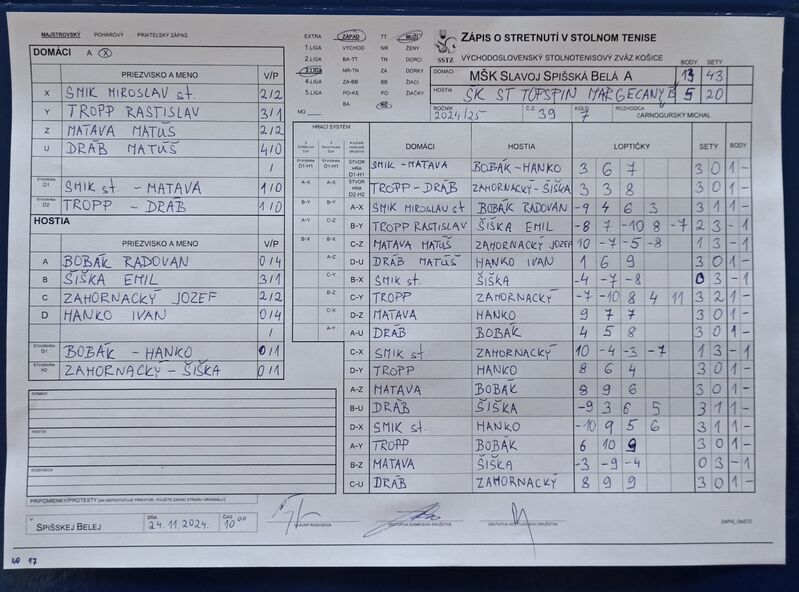 MAJSTROVSKÝ POHÁROVÝ PRIATEĽSKÝ ZÁPAS
DOMÁCI A X
PRIEZVISKO A MENO V/P
X SMIK MIROSLAV st. 2/2
Y TROPP RASTISLAV 3/1
Z MATAVA MATÚŠ 2/2
U DRÁB MATÚŠ 4/0
/
ŠTVORHRA D1 SMIK st. - MATAVA 1/0
D2 TROPP - DRÁB 1/0
HOSTIA
PRIEZVISKO A MENO V/P
A BOBÁK RADOVAN 0/4
B ŠIŠKA EMIL 3/1
C ZAHORNACKÝ JOZEF 2/2
D HANKO IVAN 0/4
/
ŠTVORHRA D1 BOBÁK - HANKO 0/1
H2 ZAHORNACKÝ - ŠIŠKA 0/1
DOMÁCI
HOSTIA
ROZHODCA
PRIPOMIENKY/PROTESTY (AK NEPOSTAČUJE PRIESTOR, POUŽITE ZADNÚ STRANU ORIGINÁLU)
V: SPIŠSKEJ BELEJ DŇA 24.11.2024. ČAS 10 00
EXTRA ZÁPAD TT MUŽI
1.LIGA VÝCHOD NR ŽENY
2.LIGA BA-TT TN DORCI
3.LIGA NR-TN ZA DORKY
4.LIGA ZA-BB BB ŽIACI
5.LIGA PO-KE PO ŽIAČKY
MO BA KE
SSTZ
ZÁPIS O STRETNUTÍ V STOLNOM TENISE
VÝCHODOSLOVENSKÝ STOLNOTENISOVÝ ZVÄZ KOŠICE
BODY SETY
DOMÁCI MŠK SLAVOJ SPIŠSKÁ BELÁ A 13 43
HOSTIA ŠK ST TOPSPIN MARGECANY B 5 20
ROČNÍK 2024/25 Č.Z. 39 KOLO 7 ROZHODCA CARNOGURSKÝ MICHAL
HRACÍ SYSTÉM DOMÁCI HOSTIA LOPTIČKY SETY BODY
ŠTVORHRA D1-H1 SMIK - MATAVA BOBÁK - HANKO 3 6 7 3 0 1 -
ŠTVORHRA D2-H2 TROPP - DRÁB ZAHORNACKÝ - ŠIŠKA 3 3 8 3 0 1 -
A-X SMIK MIROSLAV st BOBÁK RADOVAN -9 4 6 3 3 1 1 -
B-Y TROPP RASTISLAV ŠIŠKA EMIL -8 7 -10 8 -7 2 3 - 1
C-Z MATAVA MATÚŠ ZAHORNACKÝ JOZEF 10 -7 -5 -8 1 3 - 1
D-U DRÁB MATÚŠ HANKO IVAN 1 6 9 3 0 1 -
B-X SMIK st. ŠIŠKA -4 -7 -8 0 3 - 1
C-Y TROPP ZAHORNACKÝ -7 -10 8 4 11 3 2 1 -
D-Z MATAVA HANKO 9 7 7 3 0 1 -
A-U DRÁB BOBÁK 4 5 8 3 0 1 -
C-X SMIK st. ZAHORNACKÝ 10 -4 -3 -7 1 3 - 1
D-Y TROPP HANKO 8 6 4 3 0 1 -
A-Z MATAVA BOBÁK 8 9 6 3 0 1 -
B-U DRÁB ŠIŠKA -9 3 6 5 3 1 1 -
D-X SMIK st. HANKO -10 9 5 6 3 1 1 -
A-Y TROPP BOBÁK 6 10 9 3 0 1 -
B-Z MATAVA ŠIŠKA -3 -9 -4 0 3 - 1
C-U DRÁB ZAHORNACKÝ 8 9 9 3 0 1 -
HLAVNÝ ROZHODCA ZÁSTUPCA DOMÁCEHO DRUŽSTVA ZÁSTUPCA HOSŤUJÚCEHO DRUŽSTVA